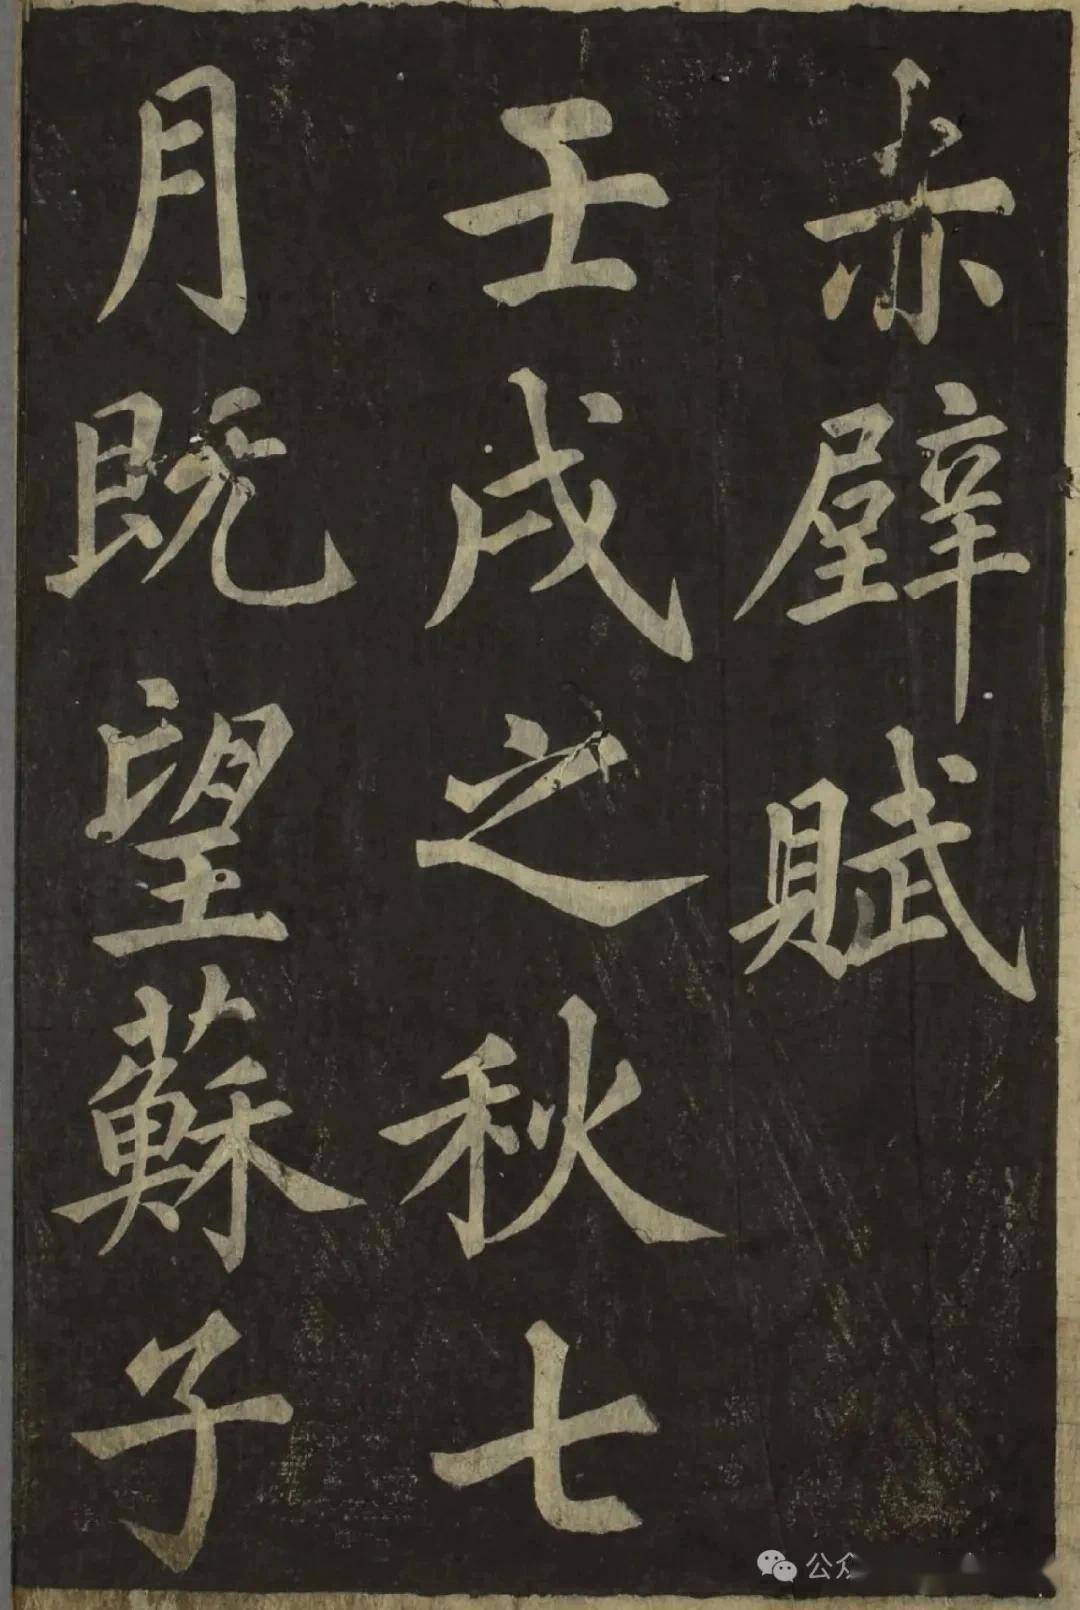 赤壁賦
壬戌之秋七
月既望蘇子
公众